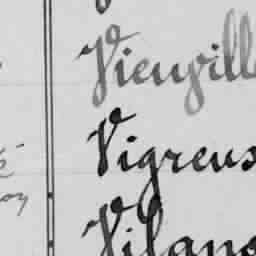 Vieuvill
Vigreus
Vilano